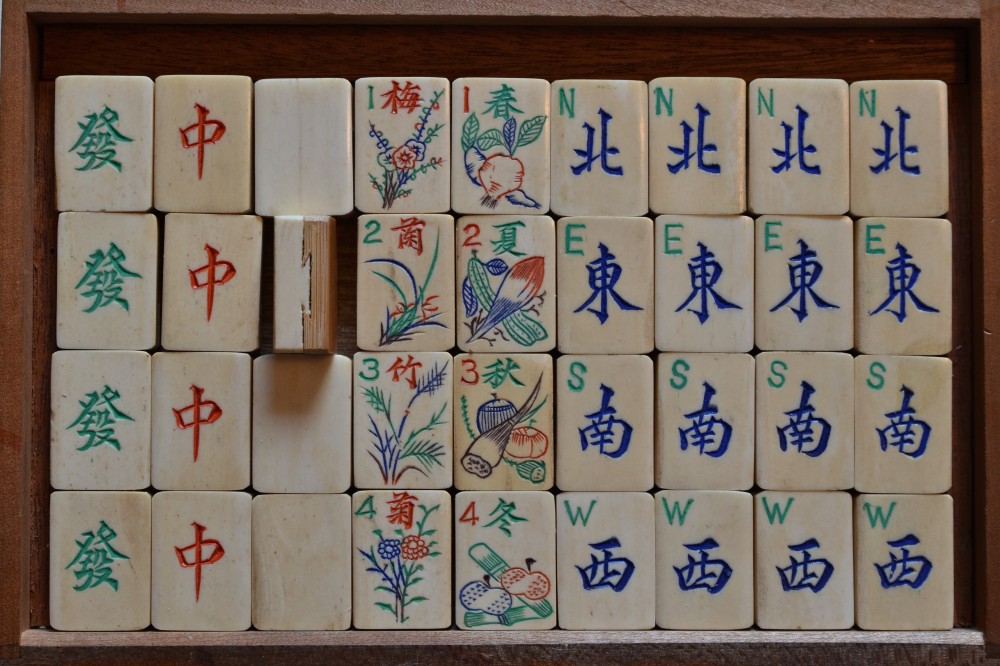 發 中 1 梅 1 春 N 北 N 北 N 北 N 北
發 中 2 蘭 2 夏 E 東 E 東 E 東 E 東
發 中 3 竹 3 秋 S 南 S 南 S 南 S 南
發 中 4 菊 4 冬 W 西 W 西 W 西 W 西